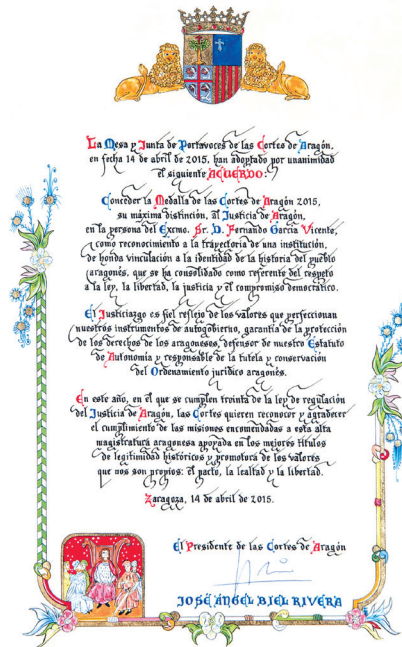 La Mesa y Junta de Portavoces de las Cortes de Aragón,
en fecha 14 de abril de 2015, han adoptado por unanimidad
el siguiente ACUERDO:
Conceder la Medalla de las Cortes de Aragón 2015,
su máxima distinción, al Justicia de Aragón,
en la persona del Excmo. Sr. D. Fernando García Vicente,
como reconocimiento a la trayectoria de una institución,
de honda vinculación a la identidad de la historia del pueblo
aragonés, que se ha consolidado como referente del respeto
a la ley, la libertad, la justicia y el compromiso democrático.
El Justiciazgo es fiel reflejo de los valores que perfeccionan
nuestros instrumentos de autogobierno, garantía de la protección
de los derechos de los aragoneses, defensor de nuestro Estatuto
de Autonomía y responsable de la tutela y conservación
del Ordenamiento jurídico aragonés.
En este año, en el que se cumplen treinta de la ley de regulación
del Justicia de Aragón, las Cortes quieren reconocer y agradecer
el cumplimiento de las misiones encomendadas a esta alta
magistratura aragonesa apoyada en los mejores títulos
de legitimidad históricos y promotora de los valores
que nos son propios: el pacto, la lealtad y la libertad.
Zaragoza, 14 de abril de 2015.
El Presidente de las Cortes de Aragón
JOSÉ ÁNGEL BIEL RIVERA